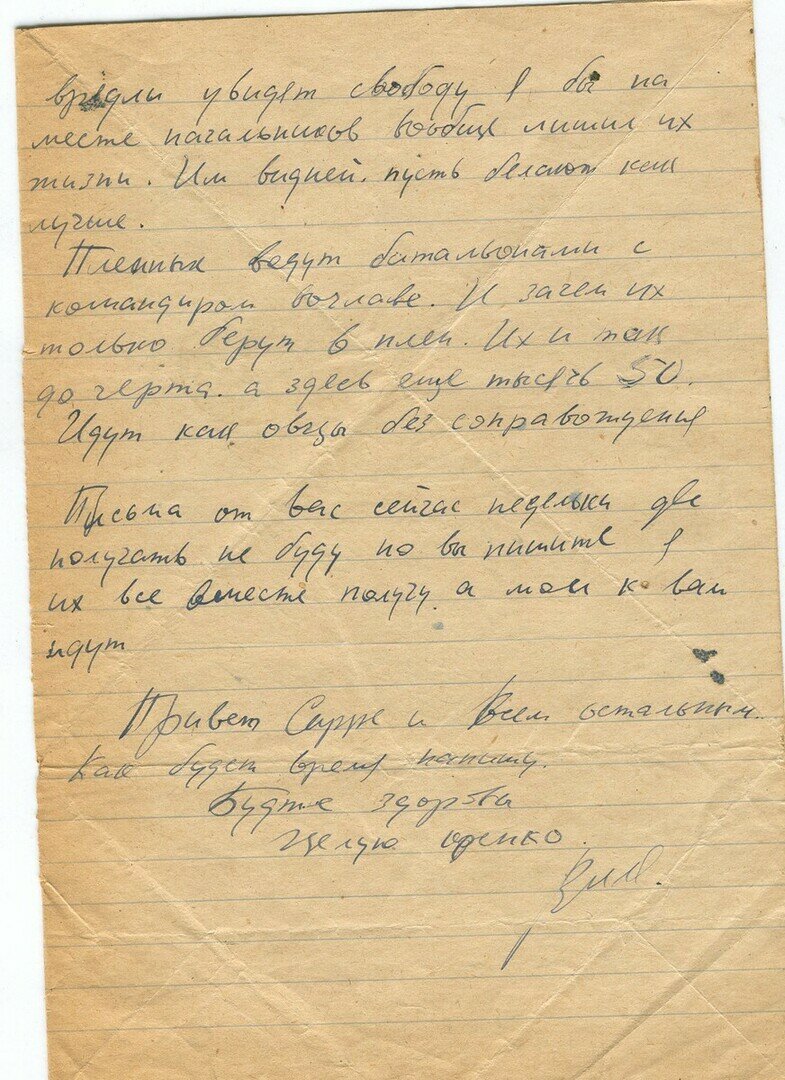 врядли увидят свободу я бы на
месте начальников вообще лишил их
жизни. Им видней. пусть делают как
лучше.
Пленных ведут батальонами с
командиром вочглаве. И зачем их
только берут в плен. Их и так
до черта. а здесь еще тысячь 50.
Идут как овцы без соправождения
Письма от вас сейчас недельки две
получать не буду но вы пишите я
их все вместе получу а мои к вам
идут
Привет Сарре и всем остальным.
Как будет время напишу.
Будте здоровы
Целую крепко.